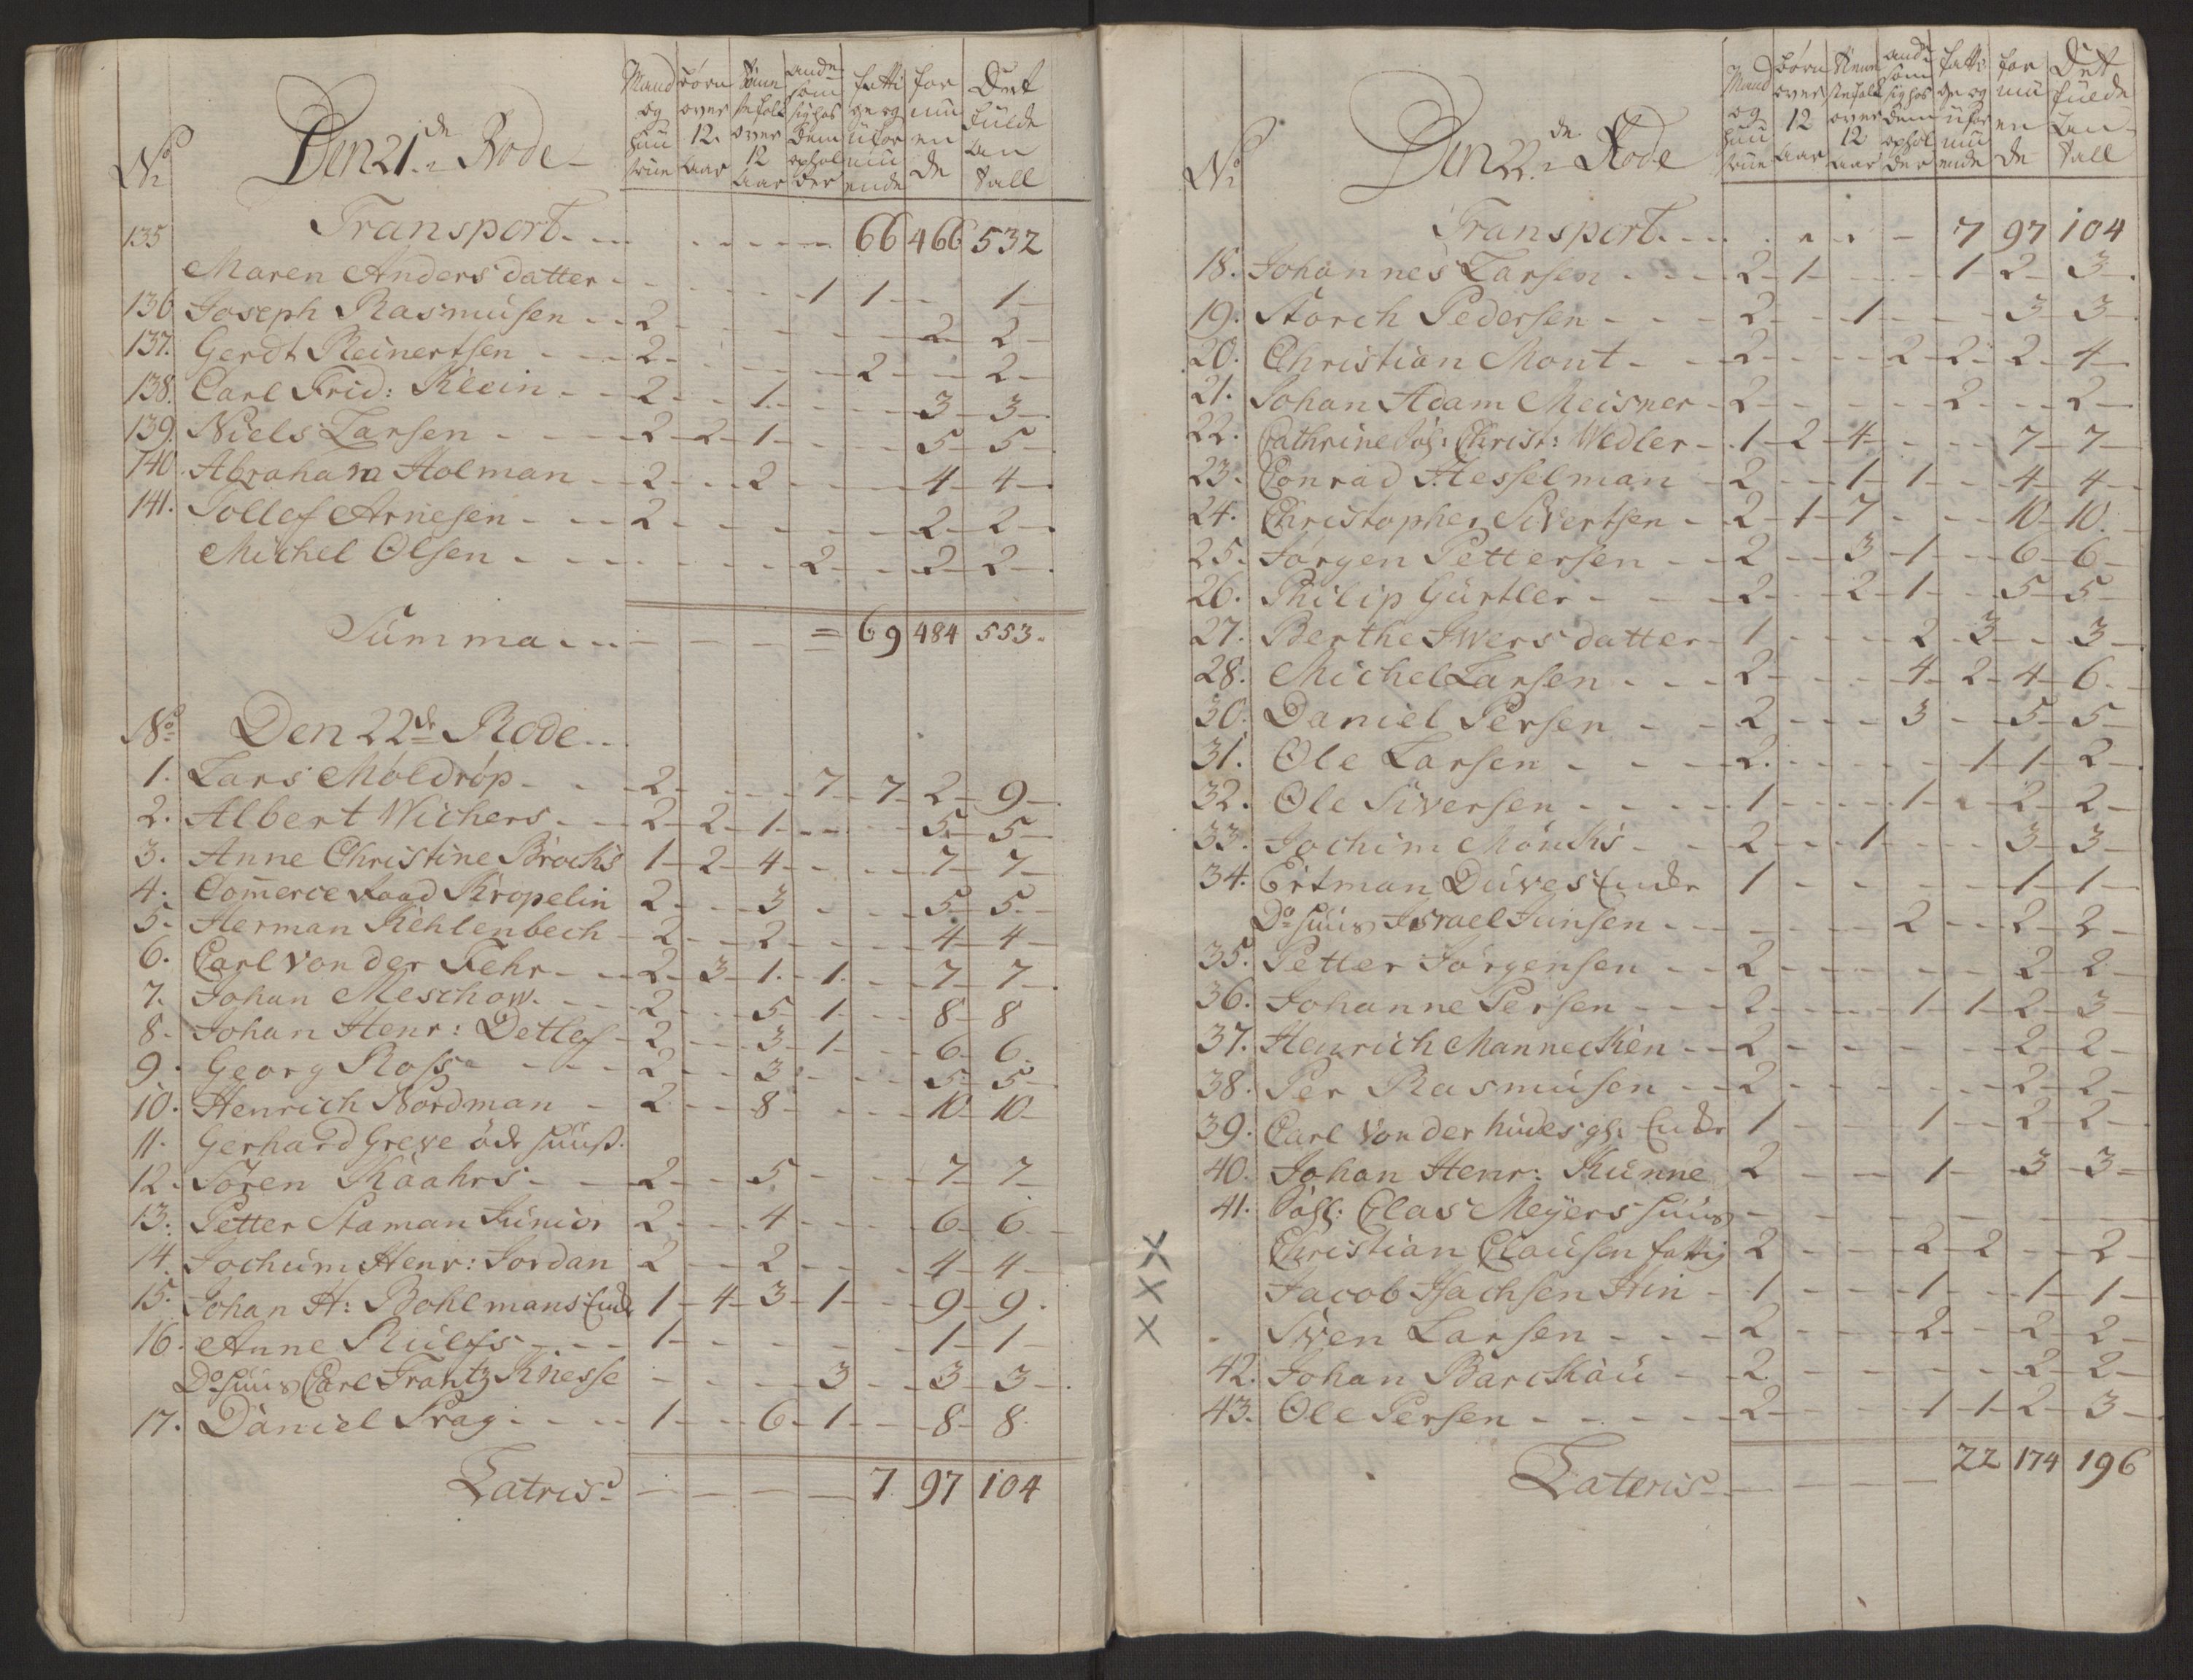 No
Den 21de Rode
Mand og huustrue
børn over 12. aar
tienestefolk over 12 aar
andre som sig hos dem opholder
fattige og uformuende
formuende
Det fulde antall
135 Transport 66 466 532
Maren Andersdatter 1 1 1
136 Joseph Rasmusen 2 2 2
137. Gerdt Reinertsen 2 2 2
138. Carl Frid: Klein 2 1 3 3
139. Niels Larsen 2 2 1 5 5
140. Abraham Holman 2 2 4 4
141. Tollef Arnesen 2 2 2
Michel Olsen 2 2 2
Summa 69 484 553.
No Den 22de Rode
1. Lars Moldrop 2 7 7 2 9
2. Albert Wichers 2 2 1 5 5
3. Anne Christine Brocks 1 2 4 7 7
4. Commerce Raad Kropelin 2 3 5 5
5. Herman Kehlenbech 2 2 4 4
6. Carl von der Fehr 2 3 1 1 7 7
7. Johan Meschow 2 5 1 8 8
8. Johan Henr: Detlef 2 3 1 6 6
9. Georg Ross 2 3 5 5
10. Henrich Nordman 2 8 10 10
11. Gerhard Greve öde huus.
12. Sören Kaahrs 2 5 7 7
13. Petter Staman Junior 2 4 6 6
14. Jochum Henr: Jordan 2 2 4 4
15. Johan H: Bohlmans Enke 1 4 3 1 9 9
16. Anne Rulfs 1 1 1
Do huus Carl Frantz Knesse 3 3 3
17. Daniel Prag 1 6 1 8 8
Latris 7 97 104
No
Den 22de Rode
Mand og huustrue
børn over 12 aar
tienestefolk over 12 aar
andre som sig hos dem opholder
fattige og uformuende
formuende
Det fulde antall
Transport 7 97 104
18. Johannes Larsen 2 1 1 2 3
19. Storch Pedersen 2 1 3 3
20. Christian Mont 2 2 2 2 4
21. Johan Adam Meisner 2 2 2
22. Cathrine Sl: Christ: Wedler 1 2 4 7 7
23. Conrad Hesselman 2 1 1 4 4
24. Christopher Sivertsen 2 1 7 10 10
25. Jørgen Pettersen 2 3 1 6 6
26. Philip Gürtler 2 2 1 5 5
27. Berthe Iversdatter 1 2 3 3
28. Michel Larsen 2 4 2 4 6
30. Daniel Persen 2 3 5 5
31. Ole Larsen 2 1 1 2
32. Ole Siversen 1 1 2 2
33. Jochim Mönks 2 1 3 3
34. Ertman Duves Enke 1 1 1
Do huus Israel Junsen 2 2 2
35. Petter Jørgensen 2 2 2
36. Johanne Persen 2 1 1 2 3
37. Henrich Manneckien 2 2 2
38. Per Rasmusen 2 2 2
39. Carl von der Enke 1 1 2 2
40. Johan Henr: Kunne 2 1 3 3
41. Sahl: Clas Meyers huus
X Christian Clausen fattig 2 2 2 2
X Jacob Isachsen 1 1 1 1
X Sven Larsen 2 2 2 2
42. Johan Barckau 2 2 2
43. Ole Persen 2 1 1 2 3
Lateris 22 174 196